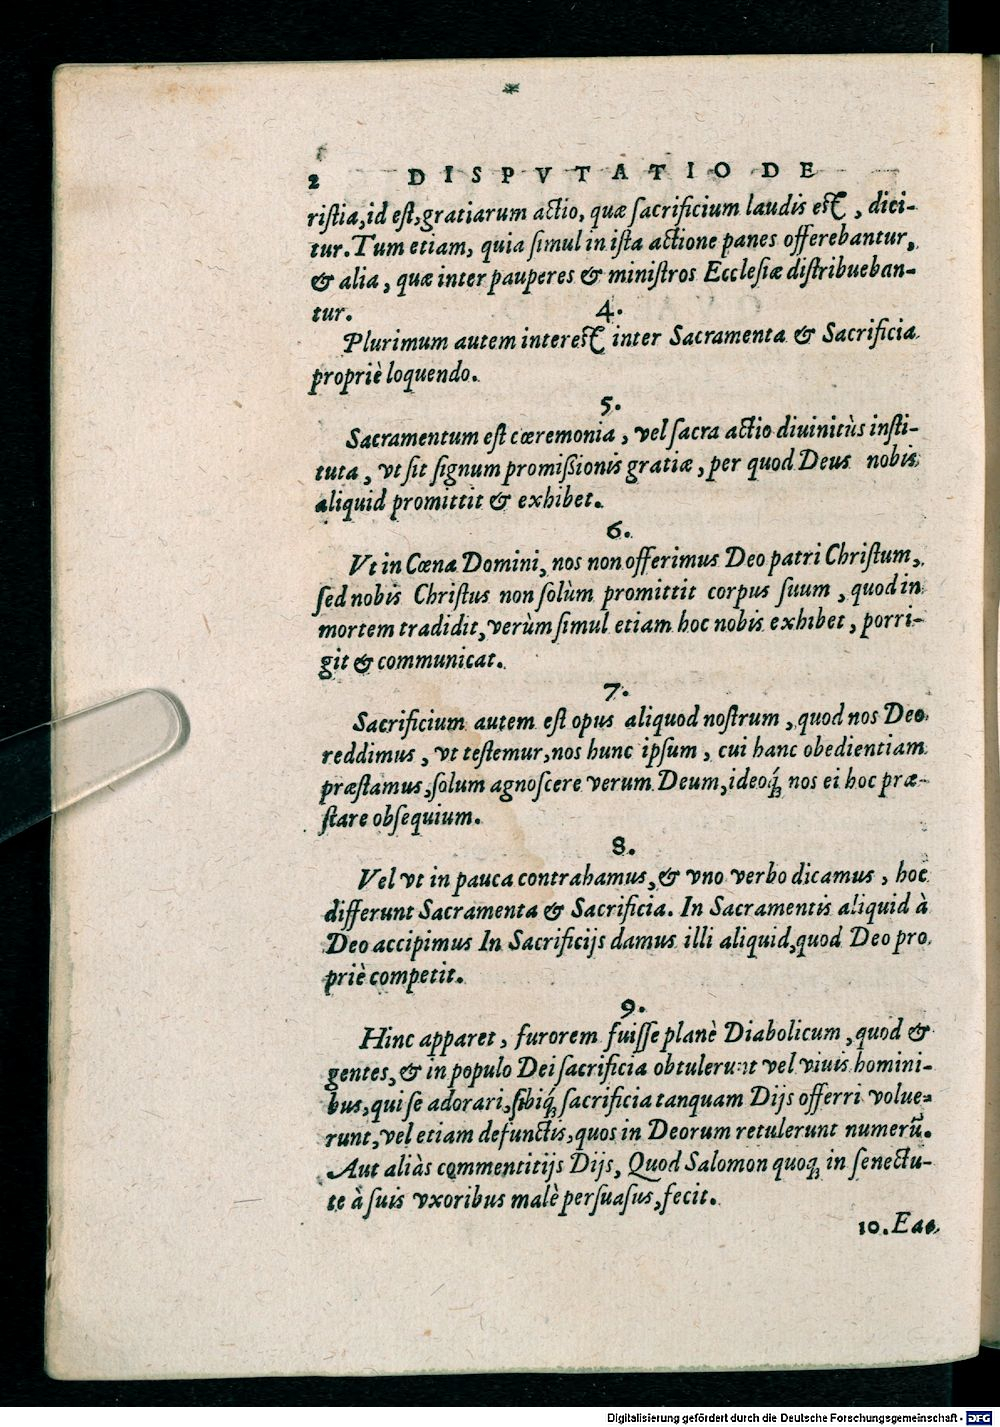 *
2 DISPVTATIO DE
ristia, id est, gratiarum actio, quæ sacrificium laudis est, dici-
tur. Tum etiam, quia simul in ista actione panes offerebantur,
& alia, quæ inter pauperes & ministros Ecclesiæ distribueban-
tur.
4.
Plurimum autem interest inter Sacramenta & Sacrificia
propriè loquendo.
5.
Sacramentum est cœremonia, vel sacra actio diuinitùs insti-
tuta, vt sit signum promißionis gratiæ, per quod Deus nobis
aliquid promittit & exhibet.
6.
Vt in Cœna Domini, nos non offerimus Deo patri Christum,
sed nobis Christus non solùm promittit corpus suum, quod in
mortem tradidit, verùm simul etiam hoc nobis exhibet, porri-
git & communicat.
7.
Sacrificium autem est opus aliquod nostrum, quod nos Deo
reddimus, vt testemur, nos hunc ipsum, cui hanc obedientiam
præstamus, solum agnoscere verum Deum, ideoq́; nos ei hoc præ-
stare obsequium.
8.
Vel vt in pauca contrahamus, & vno verbo dicamus, hoc
differunt Sacramenta & Sacrificia. In Sacramentis aliquid à
Deo accipimus In Sacrificijs damus illi aliquid, quod Deo pro
priè competit.
9.
Hinc apparet, furorem fuisse planè Diabolicum, quod &
gentes, & in populo Dei sacrificia obtulerunt vel viuis homini-
bus, qui se adorari, sibiq́; sacrificia tanquam Dijs offerri volue-
runt, vel etiam defunctis, quos in Deorum retulerunt numerũ.
Aut aliàs commentitijs Dijs, Quod Salomon quoq; in senectu-
te à suis vxoribus malè persuasus, fecit.
10. Eas
Digitalisierung gefördert durch die Deutsche Forschungsgemeinschaft - DFG